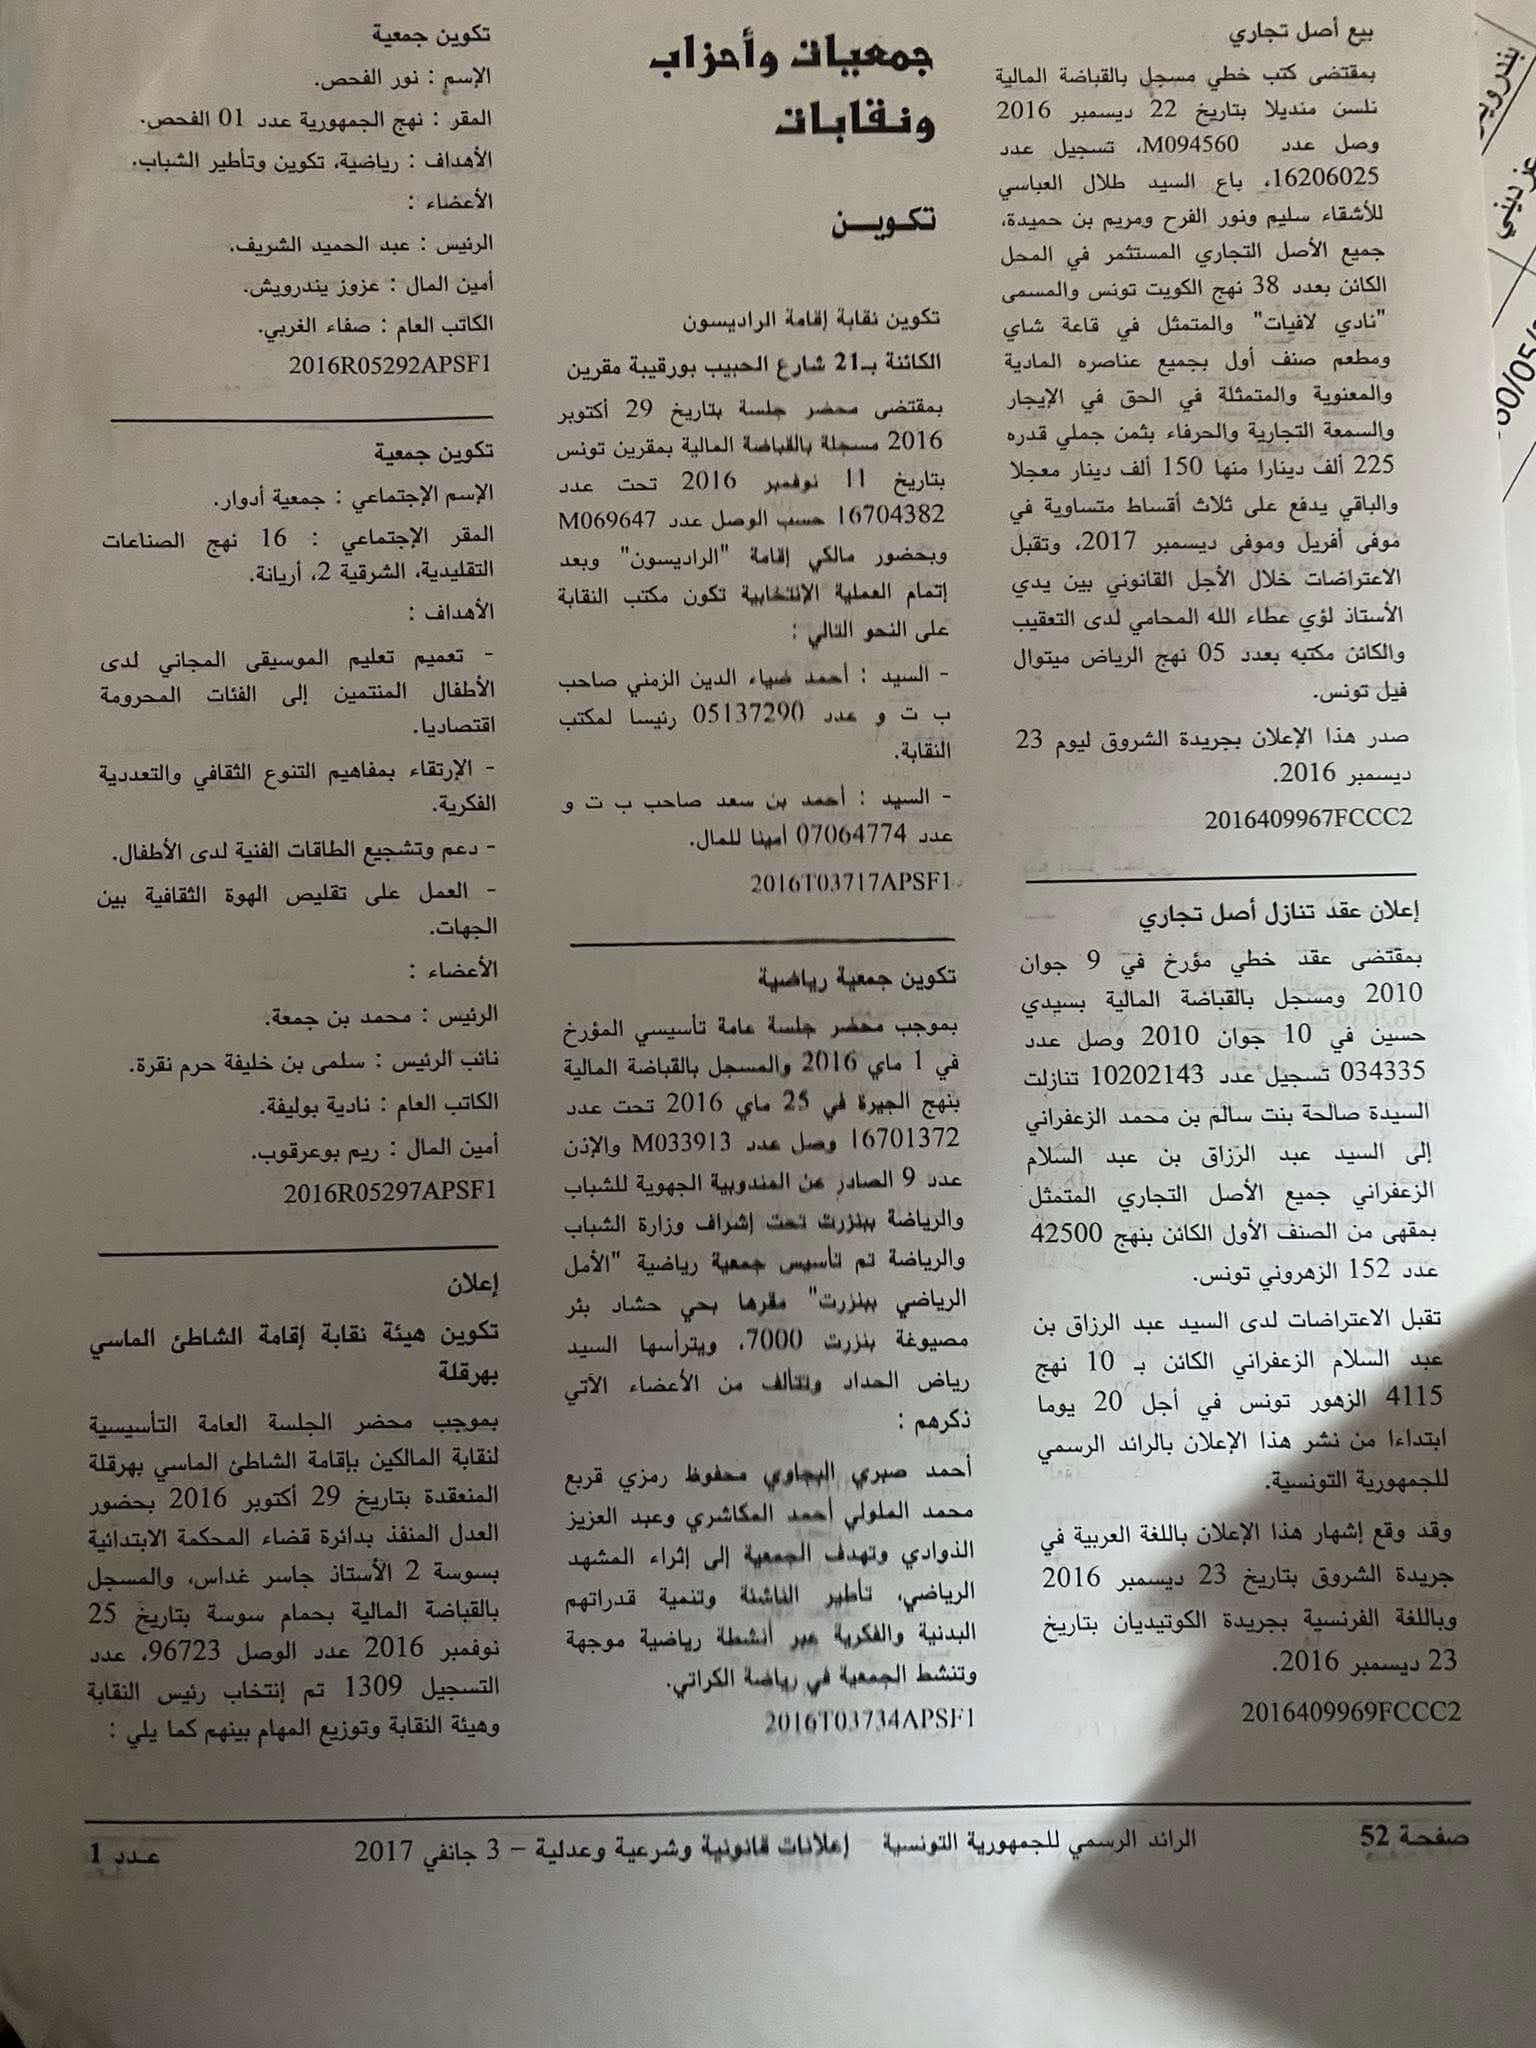 بيع أصل تجاري
بمقتضى كتب خطي مسجل بالقباضة المالية
نلسن منديلا بتاريخ 22 ديسمبر 2016
وصل عدد M094560، تسجيل عدد
16206025، باع السيد طلال العباسي
للأشقاء سليم ونور الفرح ومريم بن حميدة،
جميع الأصل التجاري المستثمر في المحل
الكائن بعدد 38 نهج الكويت تونس والمسمى
"نادي لافيات" والمتمثل في قاعة شاي
ومطعم صنف أول بجميع عناصره المادية
والمعنوية والمتمثلة في الحق في الإيجار
والسمعة التجارية والحرفاء بثمن جملي قدره
225 ألف دينارا منها 150 ألف دينار معجلا
والباقي يدفع على ثلاث أقساط متساوية في
موفى أفريل وموفى ديسمبر 2017، وتقبل
الاعتراضات خلال الأجل القانوني بين يدي
الأستاذ لؤي عطاء الله المحامي لدى التعقيب
والكائن مكتبه بعدد 05 نهج الرياض ميتوال
فيل تونس.
صدر هذا الإعلان بجريدة الشروق ليوم 23
ديسمبر 2016.
2016409967FCCC2
إعلان عقد تنازل أصل تجاري
بمقتضى عقد خطي مؤرخ في 9 جوان
2010 ومسجل بالقباضة المالية بسيدي
حسين في 10 جوان 2010 وصل عدد
034335 تسجيل عدد 10202143 تنازلت
السيدة صالحة بنت سالم بن محمد الزعفراني
إلى السيد عبد الرزاق بن عبد السلام
الزعفراني جميع الأصل التجاري المتمثل
بمقهى من الصنف الأول الكائن بنهج 42500
عدد 152 الزهروني تونس.
تقبل الاعتراضات لدى السيد عبد الرزاق بن
عبد السلام الزعفراني الكائن بـ 10 نهج
4115 الزهور تونس في أجل 20 يوما
ابتداءا من نشر هذا الإعلان بالرائد الرسمي
للجمهورية التونسية.
وقد وقع إشهار هذا الإعلان باللغة العربية في
جريدة الشروق بتاريخ 23 ديسمبر 2016
وباللغة الفرنسية بجريدة الكوتيديان بتاريخ
23 ديسمبر 2016.
2016409969FCCC2
جمعيات وأحزاب
ونقابات
تكوين
تكوين نقابة إقامة الراديسون
الكائنة بـ21 شارع الحبيب بورقيبة مقرين
بمقتضى محضر جلسة بتاريخ 29 أكتوبر
2016 مسجلة بالقباضة المالية بمقرين تونس
بتاريخ 11 نوفمبر 2016 تحت عدد
16704382 حسب الوصل عدد M069647
وبحضور مالكي إقامة "الراديسون" وبعد
إتمام العملية الإنتخابية تكون مكتب النقابة
على النحو التالي :
- السيد : أحمد ضياء الدين الزمني صاحب
ب ت و عدد 05137290 رئيسا لمكتب
النقابة.
- السيد : أحمد بن سعد صاحب ب ت و
عدد 07064774 أمينا للمال.
2016T03717APSF1
تكوين جمعية رياضية
بموجب محضر جلسة عامة تأسيسي المؤرخ
في 1 ماي 2016 والمسجل بالقباضة المالية
بنهج الجيرة في 25 ماي 2016 تحت عدد
16701372 وصل عدد M033913 والإذن
عدد 9 الصادر عن المندوبية الجهوية للشباب
والرياضة ببنزرت تحت إشراف وزارة الشباب
والرياضة تم تأسيس جمعية رياضية "الأمل
الرياضي ببنزرت" مقرها بحي حشاد بئر
مصيوغة بنزرت 7000، ويترأسها السيد
رياض الحداد وتتألف من الأعضاء الآتي
ذكرهم :
أحمد صبري البجاوي محفوظ رمزي قربع
محمد الملولي أحمد المكاشري وعبد العزيز
الذوادي وتهدف الجمعية إلى إثراء المشهد
الرياضي، تأطير الناشئة وتنمية قدراتهم
البدنية والفكرية عبر أنشطة رياضية موجهة
وتنشط الجمعية في رياضة الكراتي.
2016T03734APSF1
تكوين جمعية
الإسم : نور الفحص.
المقر : نهج الجمهورية عدد 01 الفحص.
الأهداف : رياضية، تكوين وتأطير الشباب.
الأعضاء :
الرئيس : عبد الحميد الشريف.
أمين المال : عزوز يندرويش.
الكاتب العام : صفاء الغربي.
2016R05292APSF1
تكوين جمعية
الإسم الإجتماعي : جمعية أدوار.
المقر الإجتماعي : 16 نهج الصناعات
التقليدية، الشرقية 2، أريانة.
الأهداف :
- تعميم تعليم الموسيقى المجاني لدى
الأطفال المنتمين إلى الفئات المحرومة
اقتصاديا.
- الإرتقاء بمفاهيم التنوع الثقافي والتعددية
الفكرية.
- دعم وتشجيع الطاقات الفنية لدى الأطفال.
- العمل على تقليص الهوة الثقافية بين
الجهات.
الأعضاء :
الرئيس : محمد بن جمعة.
نائب الرئيس : سلمى بن خليفة حرم نقرة.
الكاتب العام : نادية بوليفة.
أمين المال : ريم بوعرقوب.
2016R05297APSF1
إعلان
تكوين هيئة نقابة إقامة الشاطئ الماسي
بهرقلة
بموجب محضر الجلسة العامة التأسيسية
لنقابة المالكين بإقامة الشاطئ الماسي بهرقلة
المنعقدة بتاريخ 29 أكتوبر 2016 بحضور
العدل المنفذ بدائرة قضاء المحكمة الابتدائية
بسوسة 2 الأستاذ جاسر غداس، والمسجل
بالقباضة المالية بحمام سوسة بتاريخ 25
نوفمبر 2016 عدد الوصل 96723، عدد
التسجيل 1309 تم إنتخاب رئيس النقابة
وهيئة النقابة وتوزيع المهام بينهم كما يلي :
صفحة 52 الرائد الرسمي للجمهورية التونسية إعلانات قانونية وشرعية وعدلية – 3 جانفي 2017 عدد 1